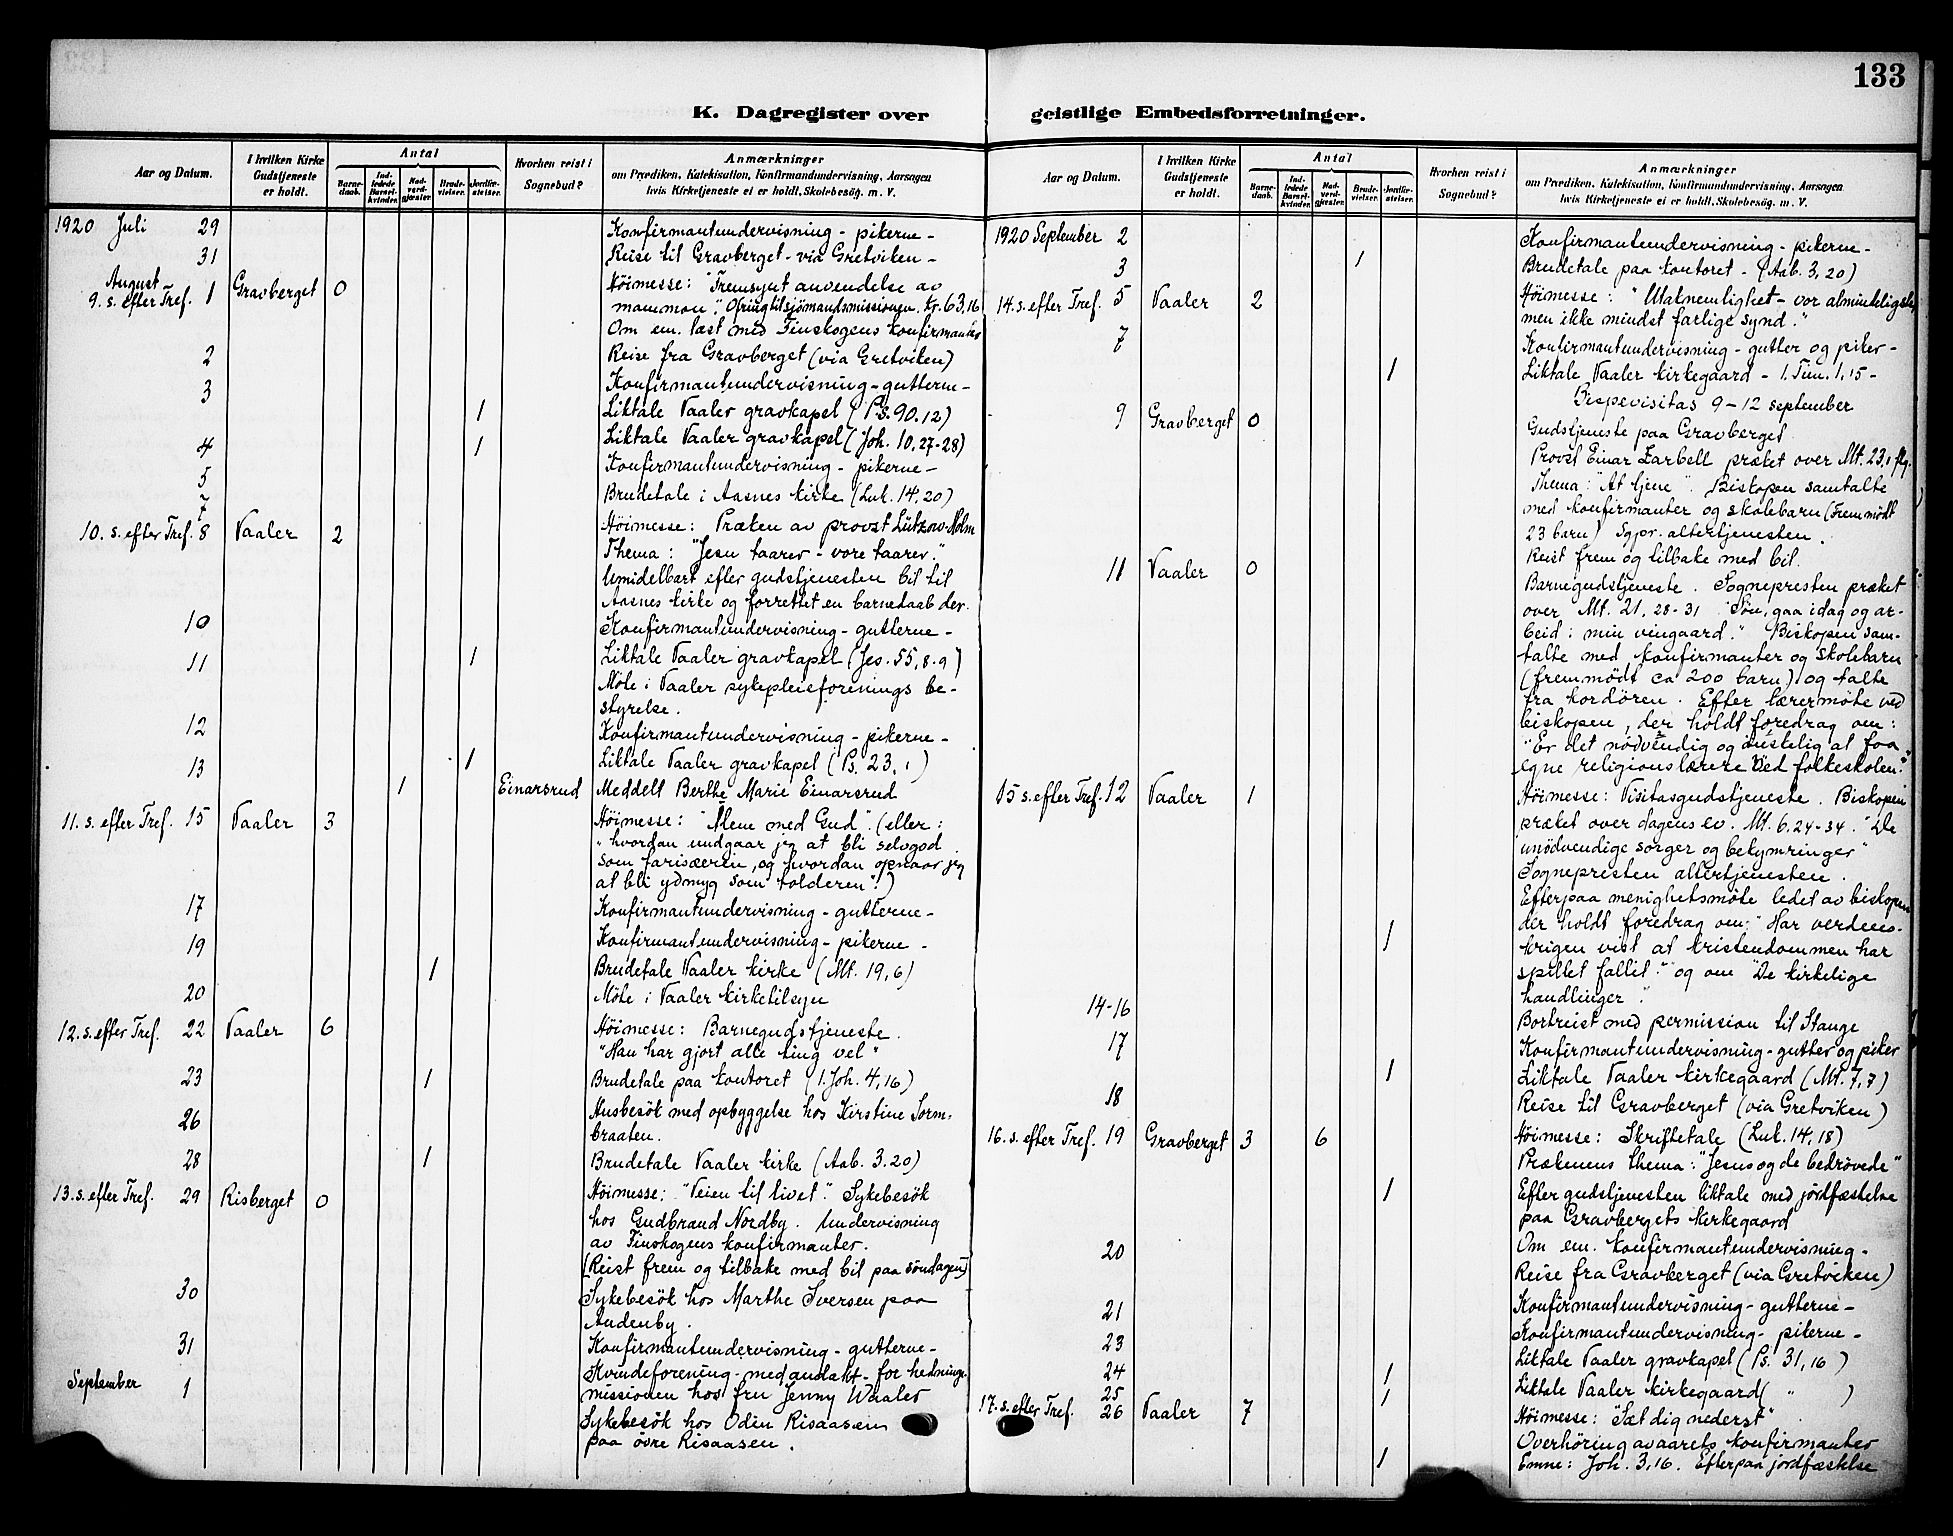 133
K. Dagregister over
Aar og Datum.
I hvilken Kirke Gudstjeneste er holdt.
Antal
Barnedaab.
Indledede Barselkvinder.
Nadverdgjæster.
Brudevielser.
Jordfæstelser.
Hvorhen reist i Sognebud?
Anmærkninger
om Prædiken, Katekisation, Konfirmandundervisning, Aarsagen
hvis Kirketjeneste ei er holdt, Skolebesøg. m. V.
1920 Juli 29 Konfirmantundervisning - pikerne -
31 Reise til Gravberget - via Gretviken -
August
9. s. efter Tref. 1 Gravberget 0 Høimesse: "Fremsynt anvendelse av
mammon". Ofring til sjömandsmissionen. Kr. 63,16
Om em. læst med Finskogens konfirmanter
2 Reise fra Gravberget (via Gretviken)
3 Konfirmantundervisning - gutterne -
1 Liktale Vaaler gravkapel (Ps. 90.12)
4 1 Liktale Vaaler gravkapel (Joh. 10,27-28)
5 Konfirmantundervisning - pikerne -
7 Brudetale i Aasnes kirke (Luk. 14,20)
10. s. efter Tref. 8 Vaaler 2 Høimesse: Præken av provst Lützow-Holm
Thema: "Jesu taarer - vore taarer."
Umidelbart efter gudstjenesten bil til
Aasnes kirke og forrettet en barnedaab der.
10 Konfirmantundervisning - gutterne -
11 1 Liktale Vaaler gravkapel (Jes. 55,8-9)
Møte i Vaaler sykepleieforenings be-
styrelse.
12 Konfirmantundervisning - pikerne -
13 1 Liktale Vaaler gravkapel (Ps. 23,1)
1 Einarsrud Meddelt Berthe Marie Einarsrud
11. s. efter Tref. 15 Vaaler 3 Høimesse: "Alene med Gud". (eller:
"hvordan undgaar jeg at bli selvgod
som farisæeren, og hvordan opnaar jeg
at bli ydmyg som tolderen"?)
17 Konfirmantundervisning - gutterne -
19 Konfirmantundervisning - pikerne -
1 Brudetale Vaaler kirke (Mt. 19,6)
20 Møte i Vaaler kirketilsyn
12. s. efter Tref. 22 Vaaler 6 Høimesse: Barnegudstjeneste.
"Han har gjort alle ting vel"
23 1 Brudetale paa kontoret (1. Joh. 4,16)
26 Husbesök med opbyggelse hos Kirstine Sorm-
braaten.
28 1 Brudetale Vaaler kirke (Aab. 3.20)
13. s. efter Tref. 29 Risberget 0 Høimesse: "Veien til livet". Sykebesök
hos Gudbrand Nordby. Undervisning
av Finskogens konfirmanter.
(Reist frem og tilbake med bil paa söndagen)
30 Sykebesök hos Marthe Iversen paa
Audenby.
31 Konfirmantundervisning - gutterne -
September 1 Kvindeforening - med andakt - for hedninge-
missionen hos fru Jenny Waaler
Sykebesök hos Odin Risaasen
paa övre Risaasen.
geistlige Embedsforretninger.
Aar og Datum.
I hvilken Kirke Gudstjeneste er holdt.
Antal
Barnedaab.
Indledede Barselkvinder.
Nadverdgjæster.
Brudevielser.
Jordfæstelser.
Hvorhen reist i Sognebud?
Anmærkninger
om Prædiken, Katekisation, Konfirmandundervisning, Aarsagen
hvis Kirketjeneste ei er holdt, Skolebesøg. m. V.
1920 September 2 Konfirmantundervisning - pikerne -
3 1 Brudetale paa kontoret - (Aab. 3,20)
14. s. efter Tref. 5 Vaaler 2 Høimesse: "Utaknemlighet - vor almindeligste,
men ikke mindst farlige synd."
7 Konfirmantundervisning - gutter og piker -
1 Liktale Vaaler kirkegaard - 1. Tim. 1,15 -
Bispevisitas 9-12 september
9 Gravberget 0 Gudstjeneste paa Gravberget.
Provst Einar Zarbell præket over Mt. 23,1 flg.
Thema: At tjene". Biskopen samtalte
med konfirmanter og skolebarn (Fremmödt
23 barn) Sgpr. altertjenesten.
Reist frem og tilbake med bil.
11 Vaaler 0 Barnegudstjeneste. Sognepresten præket
over Mt. 21,28-31 "Søn, gaa idag og ar-
beid i min vingaard." Biskopen sam-
talte med konfirmanter og skolebarn
(fremmödt ca 200 barn) og talte
fra kordören. Efter lærermøte ved
biskopen, der holdt foredrag om:
"Er det nödvendig og önskelig at faa
egne religionslærere ved folkeskolen?"
15 s. efter Tref. 12 Vaaler 1 Høimesse: Visitasgudstjeneste. Biskopen
præket over dagens ev. Mt. 6.24-34. "De
unödvendige sorger og bekymringer"
Sognepresten altertjenesten.
Efterpaa menighetsmöte ledet av biskopen
der holdt foredrag om: "Har verdens-
1
krigen vist at kristendommen har
spillet fallit?" og om "De kirkelige
handlinger".
14-16 Bortreist med permission til Stange
17 Konfirmantundervisning - gutter og piker
1 Liktale Vaaler kirkegaard (Mt. 7,7)
18 Reise til Gravberget (via Gretviken)
16. s. efter Tref. 19 Gravberget 3 6 Høimesse: Skriftetale (Luk. 14,18)
Prækenens thema: "Jesus og de bedrøvede"
1 Efter gudstjenesten liktale med jördfæstelse
paa Gravbergets kirkegaard
Om em. konfirmantundervisning -
20 Reise fra Gravberget (via Gretviken)
21 Konfirmantundervisning - gutterne -
23 Konfirmantundervisning - pikerne -
24 1 Liktale Vaaler gravkapel (Ps. 31,16)
25 1 Liktale Vaaler kirkegaard ( " )
17. s. efter Tref. 26 Vaaler 7 Høimesse: "Sæt dig nederst"
Overhöring av aarets konfirmanter
1 Emne: Joh. 3,16. Efterpaa jordfæstelse